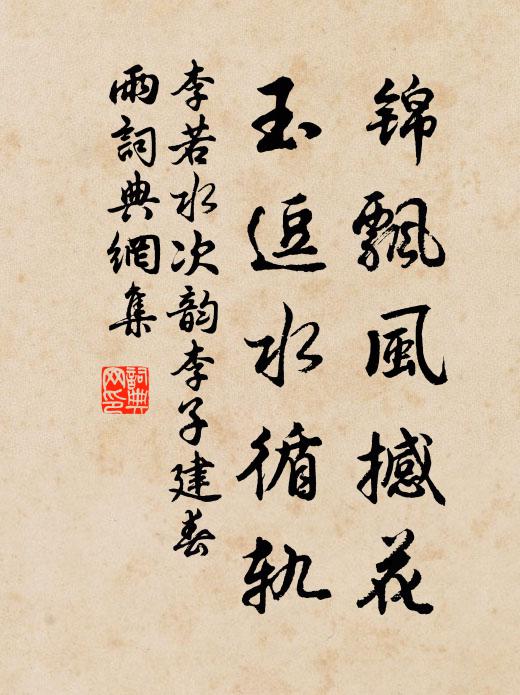 锦飘風撼花
玉逗水循轨
李若水次韵李子建春
雨詞典網集
詞典
网印